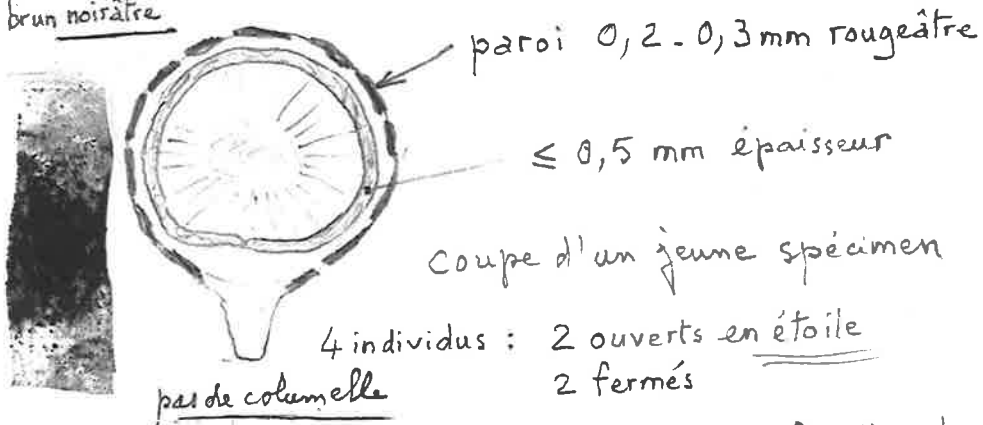 brun noirâtre
paroi 0,2-0,3mm rougeâtre
≤ 0,5 mm épaisseur
coupe d'un jeune spécimen
4 individus : 2 ouverts en étoile
2 fermés
pas de columelle